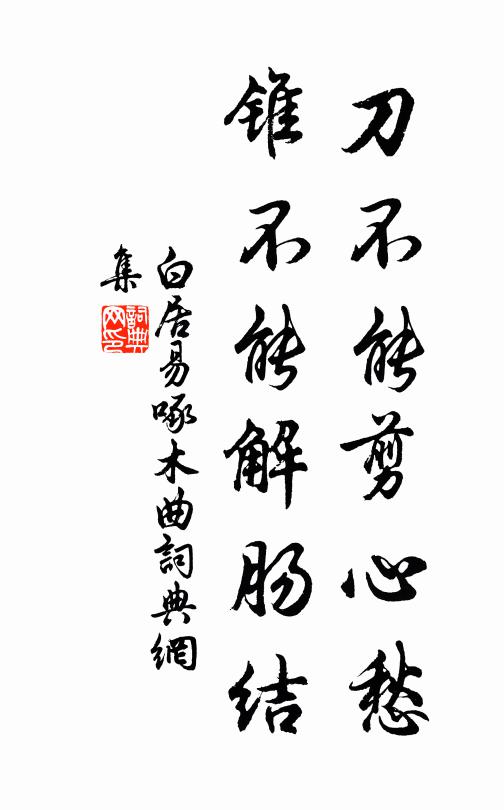 刀不能剪心愁
锥不能解肠结
白居易啄木曲詞典網
集
詞典
网印